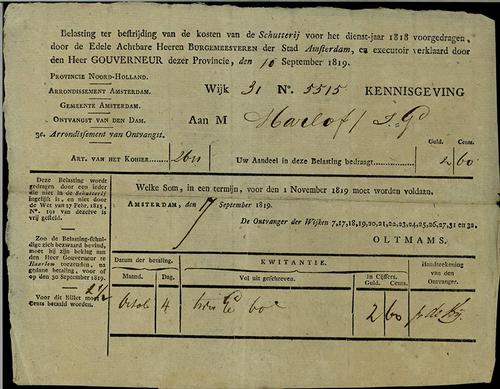 Belasting ter bestrijding van de kosten van de Schutterij voor het dienst-jaar 1818 voorgedragen,
door de Edele Achtbare Heeren BURGEMEESTEREN der Stad Amsterdam, en executoir verklaard door
den Heer GOUVERNEUR dezer Provincie, den 10 September 1819.
PROVINCIE NOORD-HOLLAND.
ARRONDISSEMENT AMSTERDAM.
GEMEENTE AMSTERDAM.
ONTVANGST VAN DEN DAM.
3e. Arrondissement van Ontvangst.
WIJK 31 No. 5515 KENNISGEVING
AAN M
Guld. Cents.
ART. VAN HET KOHIER
Uw Aandeel in deze Belasting bedraagt 2 60
Deze Belasting wordt
gedragen door een ieder
die niet in de Schutterij
ingelijft is, en niet door
de Wet van 17 Febr. 1815,
No. 191 van dezelve is
vrij gesteld.
Zoo de Belasting-schuldige
zich bezwaard bevind,
moet hij zijn beklag aan
den Heer Gouverneur te
Haarlem toezenden, na
gedane betaling, voor of
op den 30 September 1819.
Voor dit Billet moet 2½
Cents betaald worden.
Welke Som, in een termijn, voor den 1 November 1819 moet worden voldaan.
AMSTERDAM, den 17 September 1819.
De Ontvanger der Wijken 7,17,18,19,20,21,22,23,24,25,26,27,31 en 32.
OLTMAMS.
Datum der betaling.
Maand. Dag.
KWITANTIE.
Vol uit geschreven.
In Cijffers.
Guld. Cents.
Handteekening
van den
Ontvanger.
4 2 60